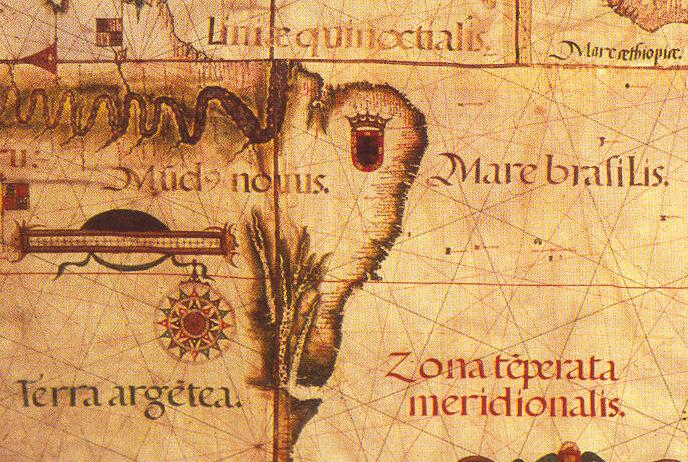 Liniæ quinoctialis.
Mare æthiopiæ.
ru:
Mũdꝰ novus.
Mare brasilis.
Terra argẽtea.
Zona tẽperata
meridionalis.